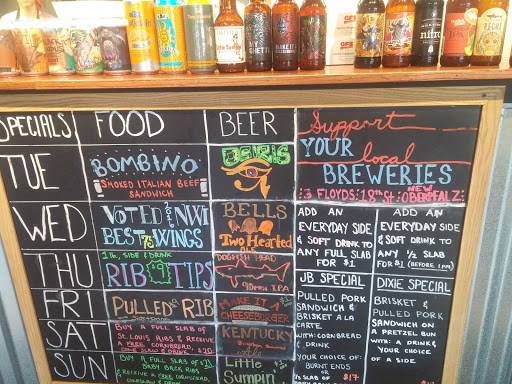 SPECIALS
FOOD
BEER
TUE
BOMBINO
SMOKED ITALIAN BEEF
SANDWICH
OSIRIS
WED
VOTED #1 IN NWI
BEST 75¢ WINGS
BELLS
Two Hearted
ALE
THU
1 lb, SIDE & DRINK
RIB $9 TIPS
DOGFISH HEAD
90 min IPA
FRI
PULLED RIB
SANDWICH
MAKE IT A
CHEESEBURGER
SAT
BUY A FULL SLAB OF
St. LOUIS RIBS & RECEIVE
A FREE CORNBREAD,
COLE SLAW & DRINK $20
KENTUCKY
Bourbon Barrel
Ale
SUN
BUY A FULL SLAB OF $21
BABY BACK RIBS
& RECEIVE A FREE CORNBREAD,
COLESLAW & DRINK
Little
Sumpin'
Support
YOUR local
BREWERIES
3 FLOYDS 18th St NEW OBERPFALZ
ADD AN
EVERYDAY SIDE
& SOFT DRINK TO
ANY FULL SLAB
FOR $1
ADD AN
EVERYDAY SIDE
& SOFT DRINK TO
ANY ½ SLAB
FOR $1 (BEFORE 1PM)
JB SPECIAL
PULLED PORK
SANDWICH &
BRISKET A LA
CARTE
WITH CORNBREAD
& DRINK
YOUR CHOICE OF:
BURNT ENDS
OR
½ SLAB OF $17
DIXIE SPECIAL
BRISKET &
PULLED PORK
SANDWICH ON
A PRETZEL BUN
WITH: A DRINK &
YOUR CHOICE
OF A SIDE
$14